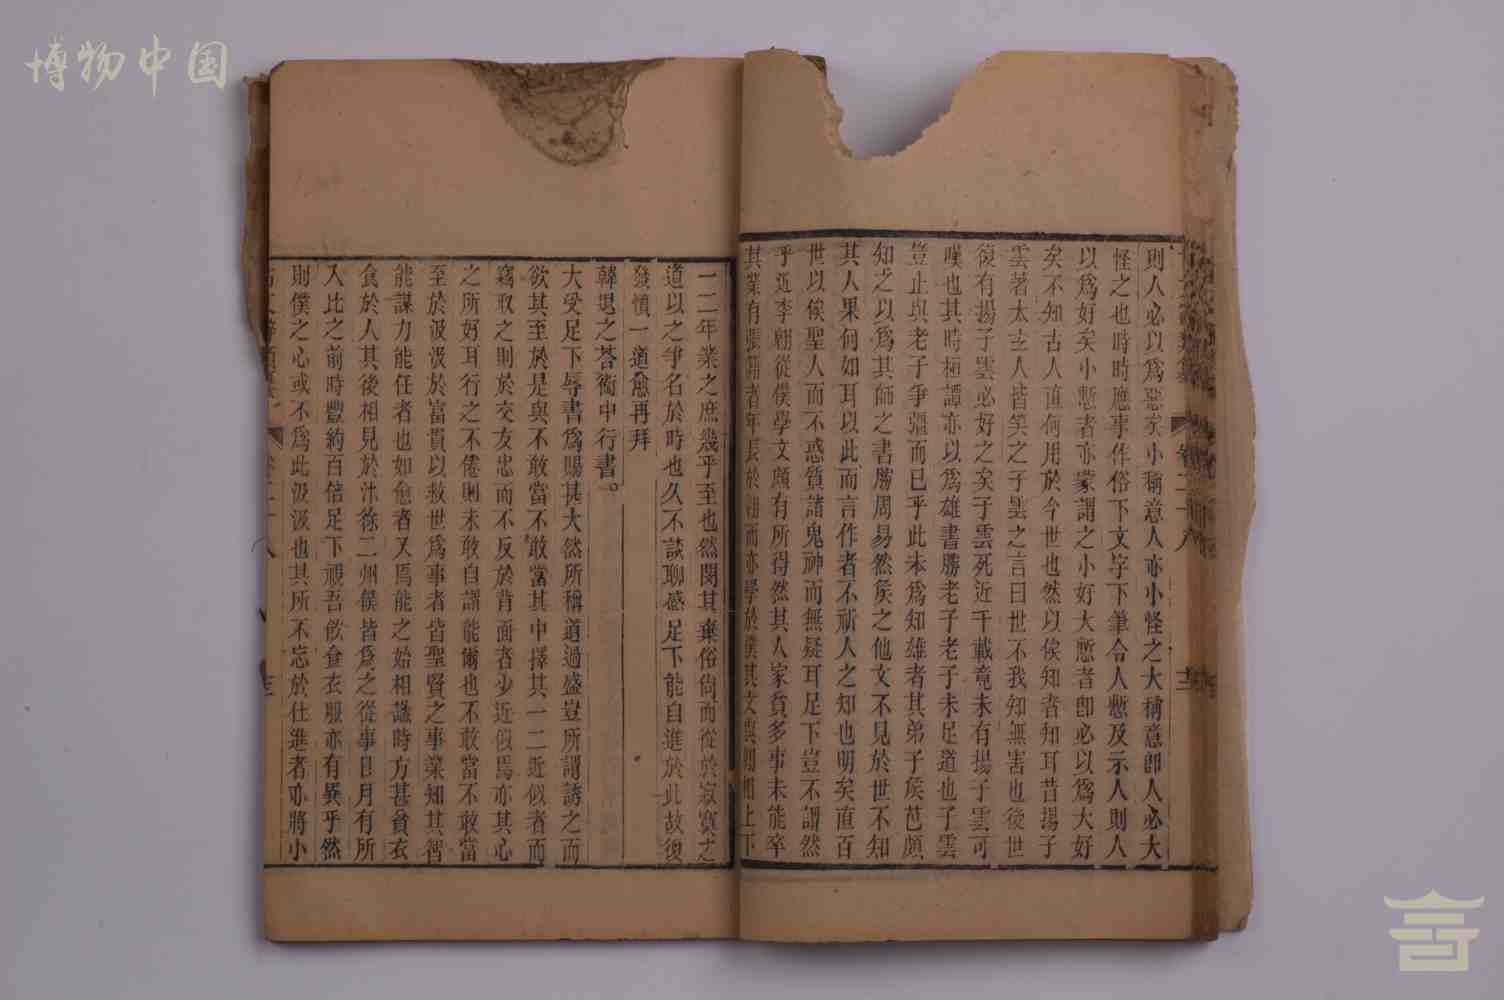 博物中国
卷二十八 十二
則人必以爲惡矣小稱意人亦小怪之大稱意卽人必大
怪之也時時應事作俗下文字下筆令人慙及示人則人
以爲好矣小慙者亦蒙謂之小好大慙者卽必以爲大好
矣不知古人直何用於今世也然以俟知者知耳昔揚子
雲著太玄人皆笑之子雲之言曰世不我知無害也後世
復有揚子雲必好之矣子雲死近千載竟未有揚子雲可
嘆也其時桓譚亦以爲雄書勝老子老子未足道也子雲
豈止與老子爭疆而已乎此未爲知雄者其弟子侯芭頗
知之以爲其師之書勝周易然侯之他文不見於世不知
其人果何如耳以此而言作者不祈人之知也明矣直百
世以俟聖人而不惑質諸鬼神而無疑耳足下豈不謂然
乎近李翱從僕學文頗有所得然其人家貧多事未能卒
其業有張籍者年長於翱而亦學於僕其文與翱相上下
一二年業之庶幾乎至也然閔其棄俗尙而從於寂寞之
道以之爭名於時也久不談聊感足下能自進於此故復
發憤一道愈再拜
韓退之荅衞中行書。
大受足下辱書爲賜甚大然所稱道過盛豈所謂誘之而
欲其至於是與不敢當不敢當其中擇其一二近似者而
竊取之則於交友忠而不反於背面者少近似焉亦其心
之所好耳行之不倦則未敢自謂能爾也不敢當不敢當
至於汲汲於富貴以救世爲事者皆聖賢之事業知其智
能謀力能任者也如愈者又焉能之始相識時方甚貧衣
食於人其後相見於汴徐二州僕皆爲之從事日月有所
入比之前時豐約百倍足下視吾飮食衣服亦有異乎然
則僕之心或不爲此汲汲也其所不忘於仕進者亦將小